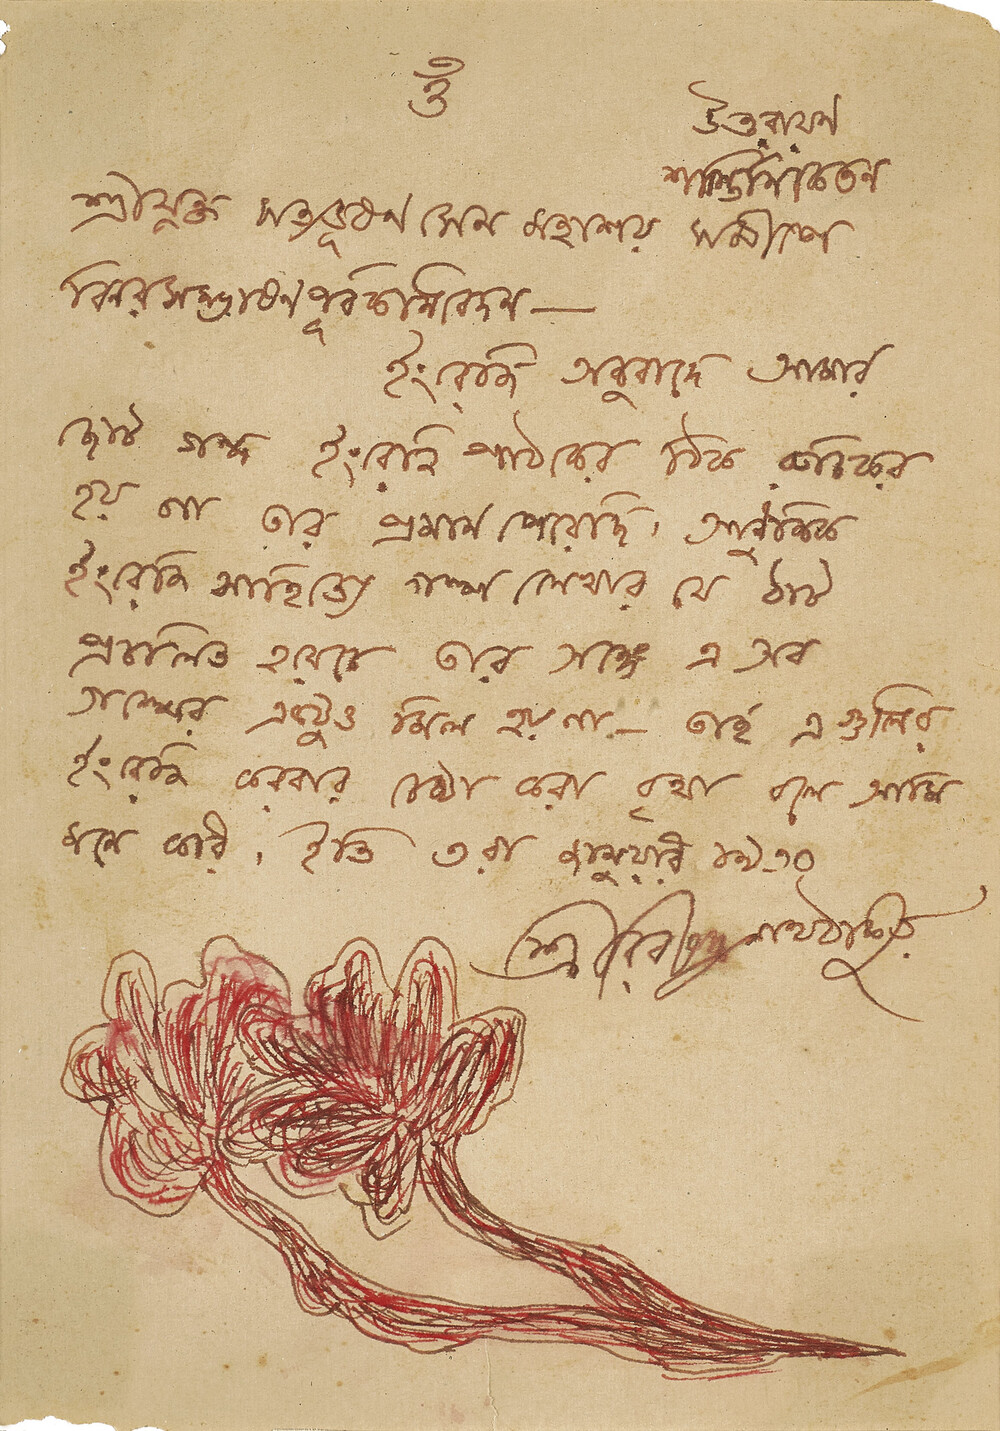 ওঁ
উত্তরায়ণ
শান্তিনিকেতন
শ্রীযুক্ত সত্যভূষণ সেন মহাশয় সমীপে
বিনয়সম্ভাষণপূর্বকনিবেদন —
ইংরেজি অনুবাদে আমার
ছোট গল্প ইংরেজি পাঠকের ঠিক রুচিকর
হয় না তার প্রমাণ পেয়েছি। আধুনিক
ইংরেজি সাহিত্যে গল্প লেখার যে ঠাট
প্রচলিত হয়েচে তার সঙ্গে এ সব
গল্পের একটুও মিল হয় না — তাই এগুলির
ইংরেজি করবার চেষ্টা করা বৃথা বলে আমি
মনে করি। ইতি ৩রা জানুয়ারি ১৯৩০
শ্রীরবীন্দ্রনাথ ঠাকুর